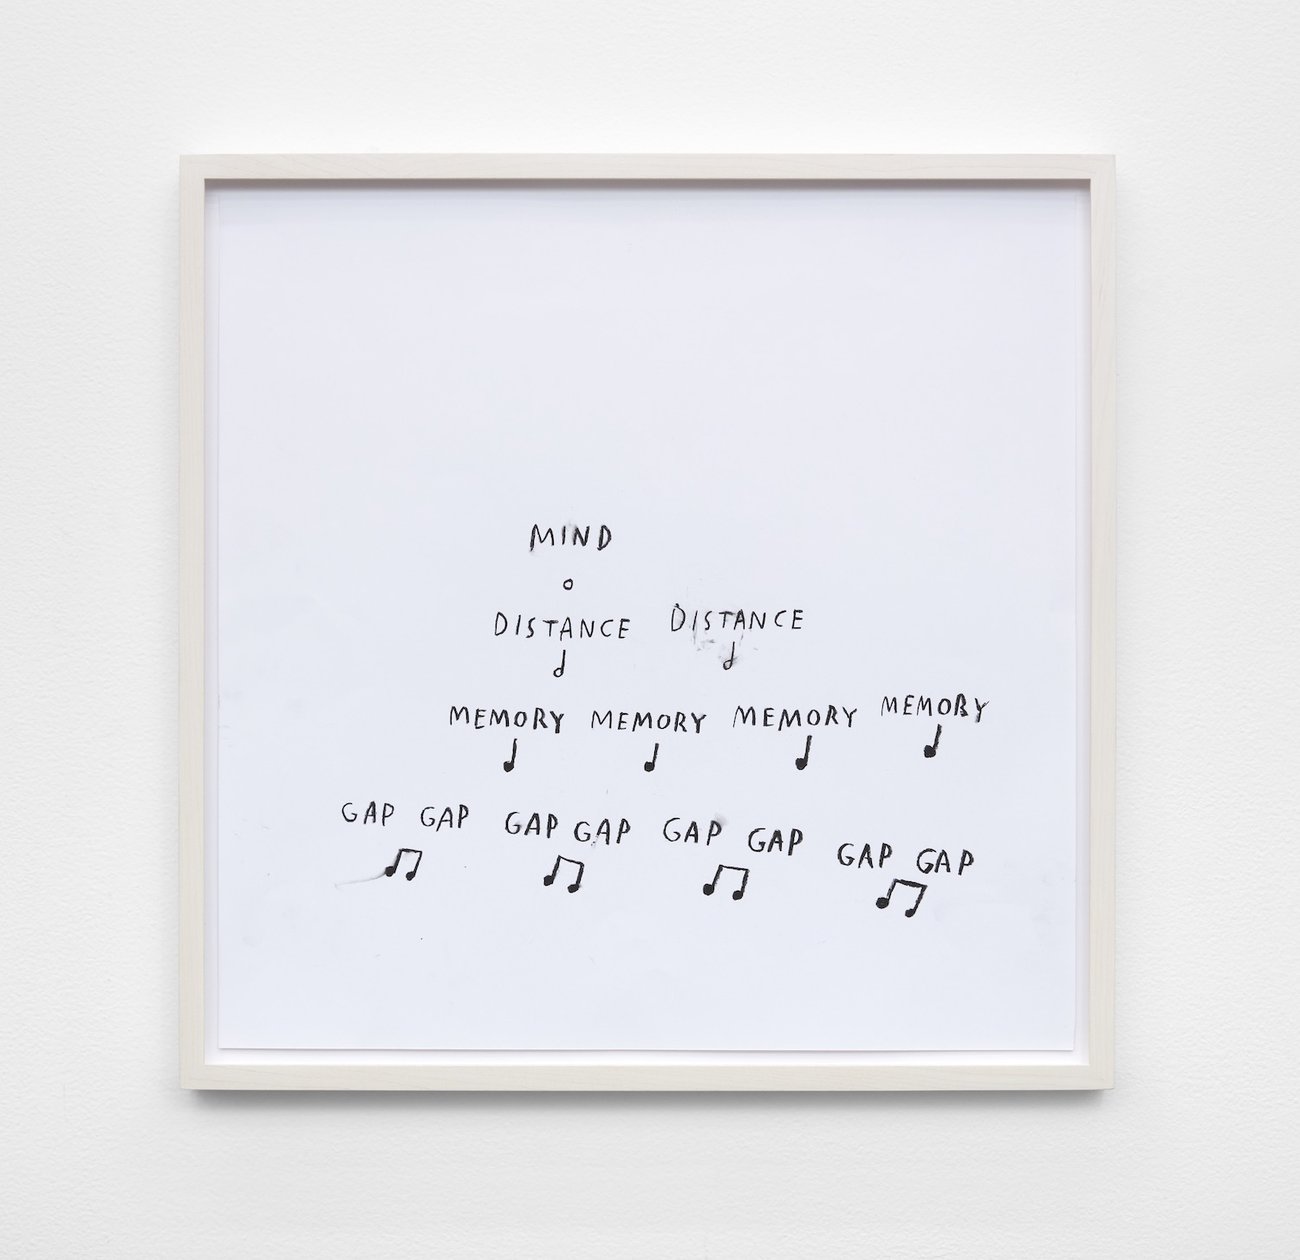 MIND
DISTANCE DISTANCE
MEMORY MEMORY MEMORY MEMORY
GAP GAP GAP GAP GAP GAP GAP GAP